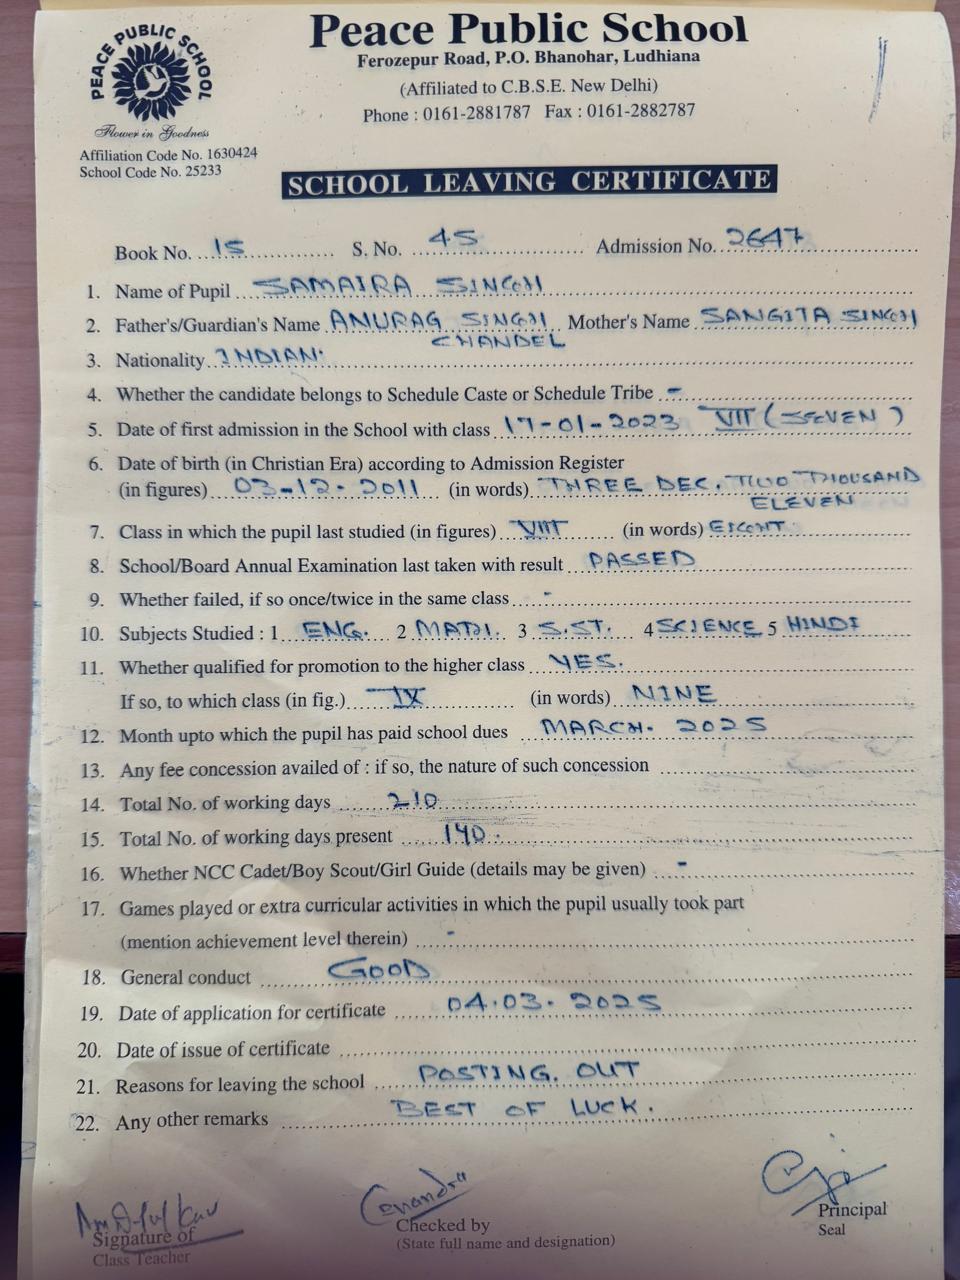 PEACE PUBLIC SCHOOL
Flower in Goodness
Affiliation Code No. 1630424
School Code No. 25233
Peace Public School
Ferozepur Road, P.O. Bhanohar, Ludhiana
(Affiliated to C.B.S.E. New Delhi)
Phone : 0161-2881787 Fax : 0161-2882787
SCHOOL LEAVING CERTIFICATE
Book No. 15 S. No. 45 Admission No. 2647
1. Name of Pupil SAMAIRA SINGH
2. Father's/Guardian's Name ANURAG SINGH Mother's Name SANGITA SINGH
CHANDEL
3. Nationality INDIAN.
4. Whether the candidate belongs to Schedule Caste or Schedule Tribe -
5. Date of first admission in the School with class 17-01-2023 VII (SEVEN)
6. Date of birth (in Christian Era) according to Admission Register
(in figures) 03-12-2011 (in words) THREE DEC. TWO THOUSAND
ELEVEN
7. Class in which the pupil last studied (in figures) VIII (in words) EIGHT
8. School/Board Annual Examination last taken with result PASSED
9. Whether failed, if so once/twice in the same class -
10. Subjects Studied : 1 ENG. 2 MATH. 3 S.ST. 4 SCIENCE 5 HINDI
11. Whether qualified for promotion to the higher class YES.
If so, to which class (in fig.) IX (in words) NINE
12. Month upto which the pupil has paid school dues MARCH. 2025
13. Any fee concession availed of : if so, the nature of such concession
14. Total No. of working days 210
15. Total No. of working days present 140.
16. Whether NCC Cadet/Boy Scout/Girl Guide (details may be given) -
17. Games played or extra curricular activities in which the pupil usually took part
(mention achievement level therein) -
18. General conduct GOOD
19. Date of application for certificate 04.03.2025
20. Date of issue of certificate
21. Reasons for leaving the school POSTING. OUT
22. Any other remarks BEST OF LUCK.
Chandra
Signature of
Class Teacher
Checked by
(State full name and designation)
Principal
Seal